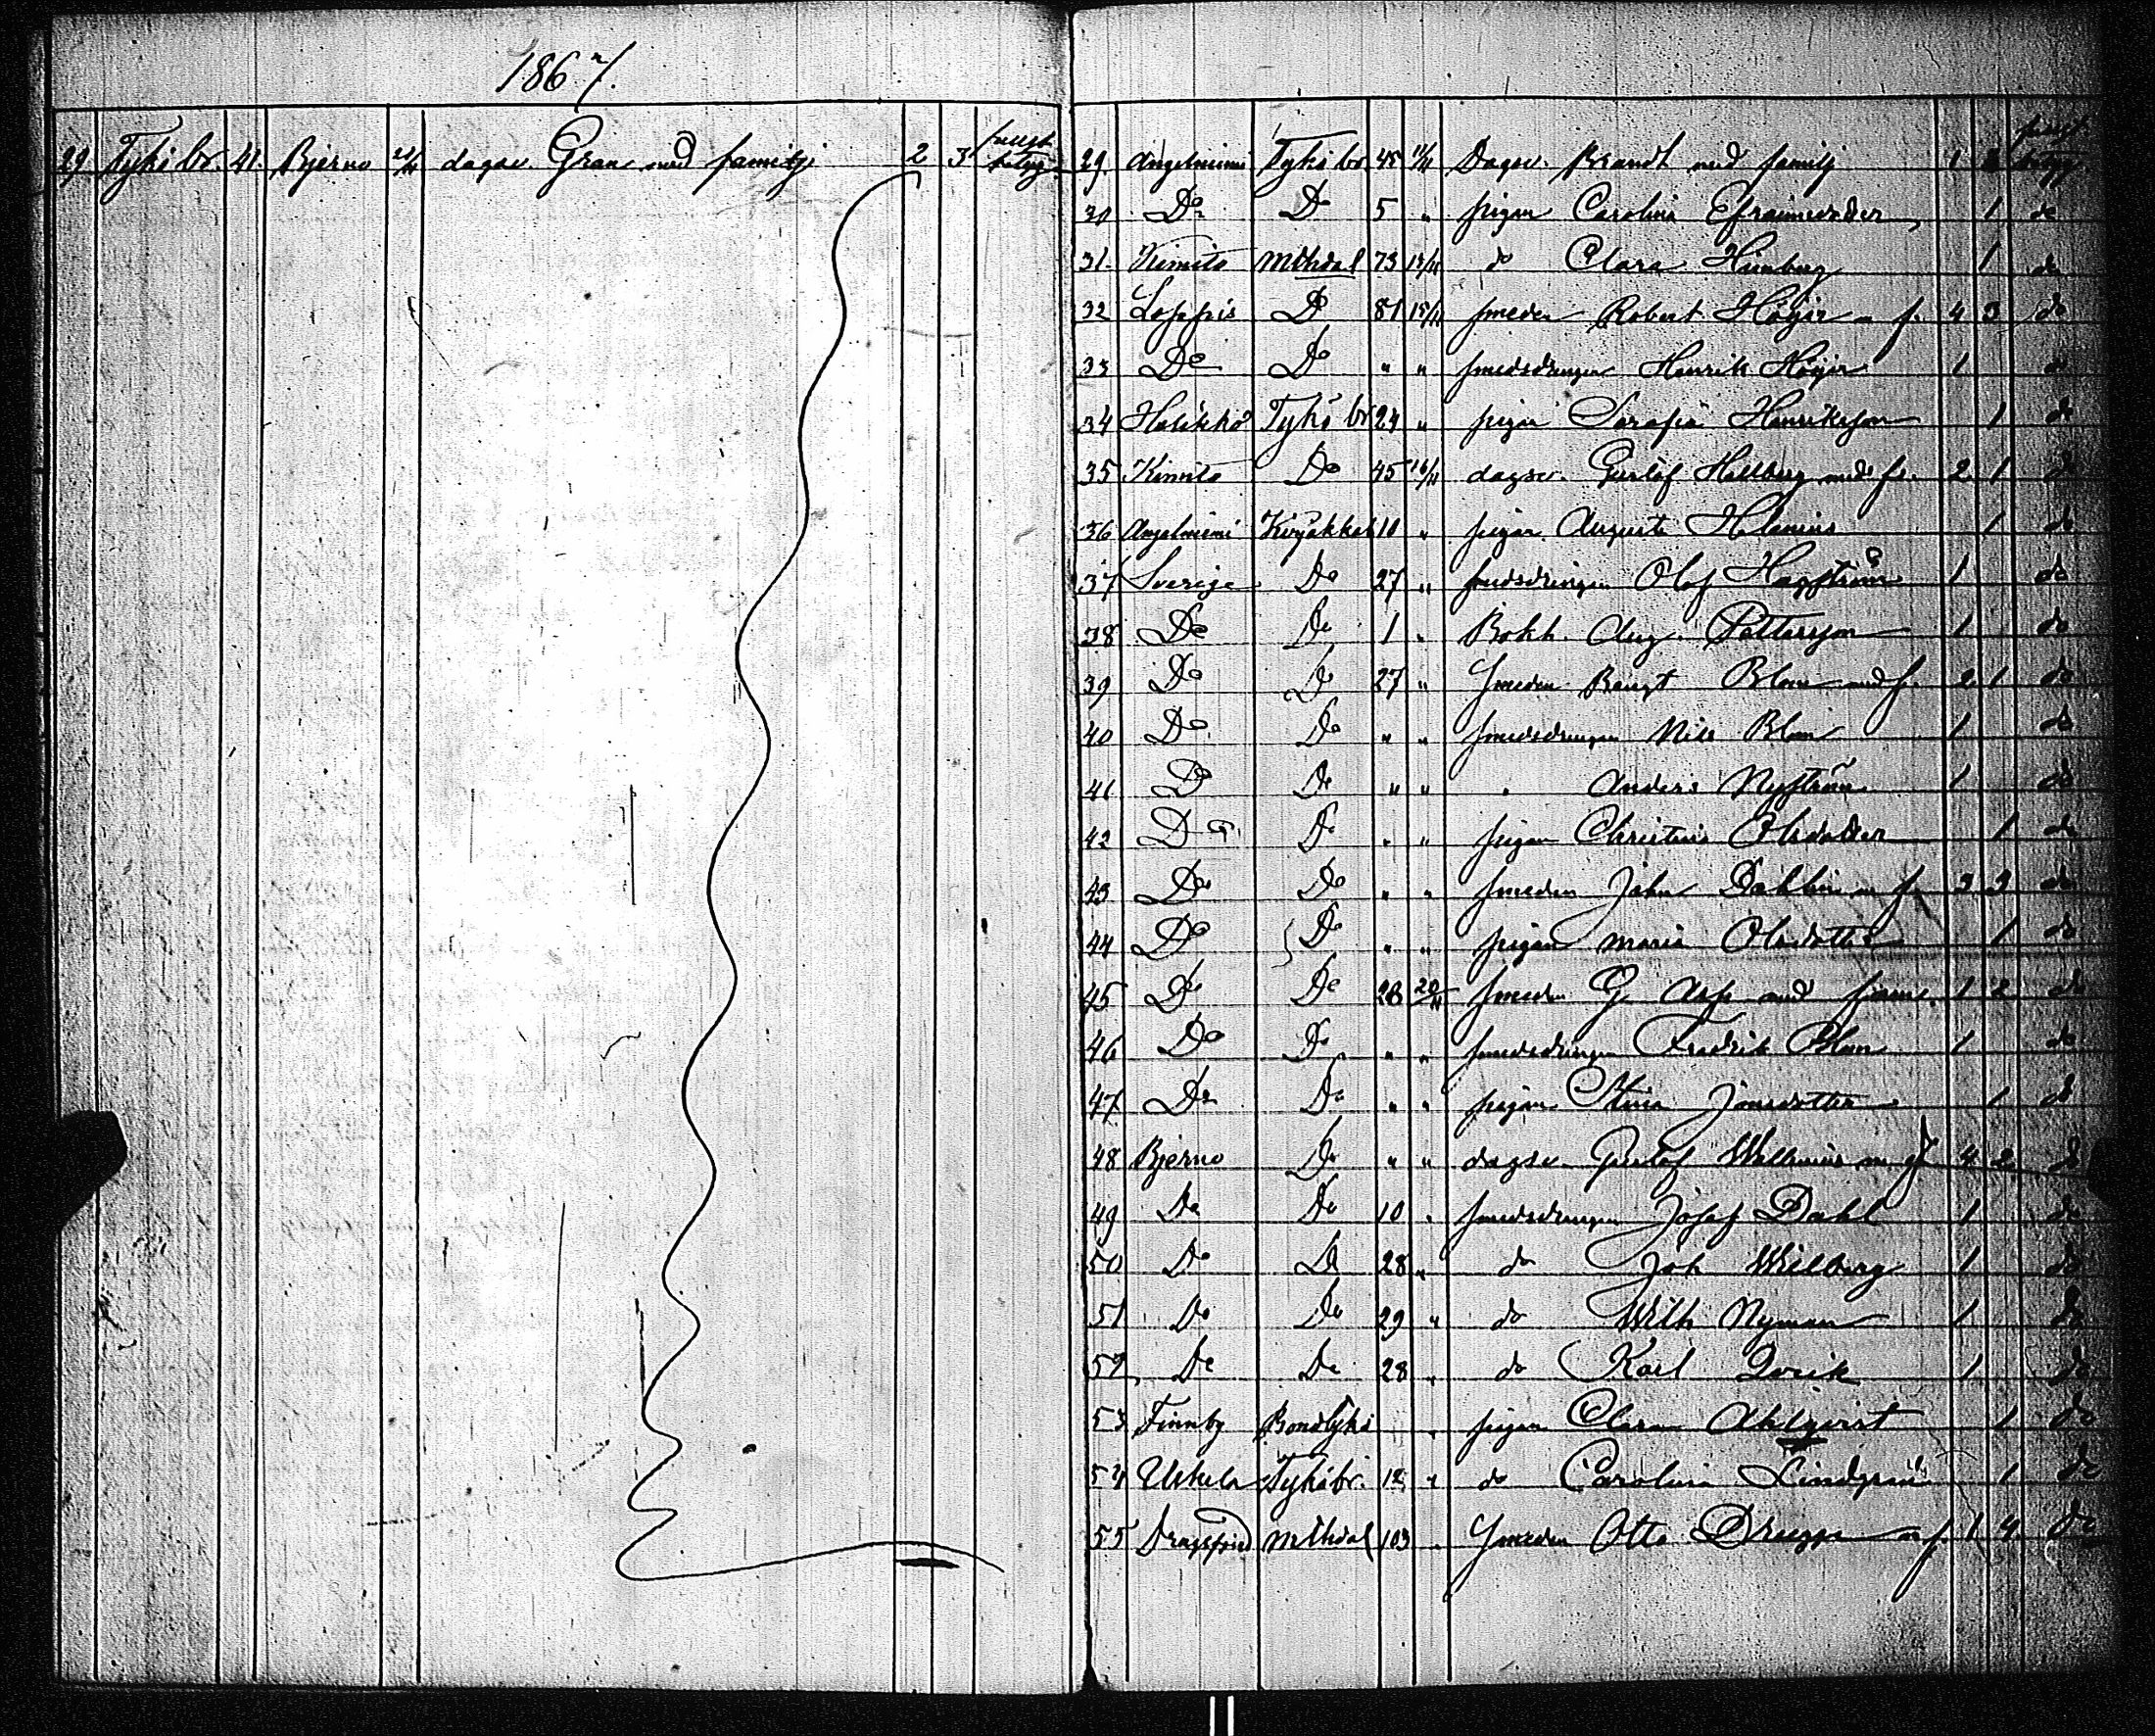 1867.
29 Tykö br. 41. Bjerno dagsv. Gran med familj 2 3
29. Angelniemi Tykö br. 45 11/11 Dagsv. Brandt med familj 1
30 Do Do 5 " pigan Carolina Efraimsdotter 1 do
31. Kimito Mthdal 73 do Clara 1 do
32 Loppis Do 81 15/11 smeden Robert Höijer m f. 4 3 do
33 Do Do " " smedsdrängen Henrik Höijer 1 do
34 Halikko Tykö br 24 " pigan Serafia Henriksson 1 do
35 Kimito Do 45 16/11 dagsv. Gustaf Hellberg med f. 2 1 do
36 Angelniemi 10 " pigan Augusta Helenius 1 do
37 Sverige Do 27 " smedsdrängen Olof Hagström 1 do
38 Do Do 1 " Bokh. Aug. Pettersson 1 do
39 Do Do 27 " Smeden Bengt Blom med f. 2 1 do
40 Do Do " " smedsdrängen Nils Blom 1 do
41 Do Do " " " Anders Nyström 1 do
42 Do Do " " pigan Christina Olsdotter 1 do
43 Do Do " " smeden John Dahlin m f. 3 3 do
44 Do Do " " pigan Maria Olsdotter 1 do
45 Do Do 28 20/11 smeden G. Asp med fam. 1 2 do
46 Do Do " " smedsdrängen Fredrik Blom 1 do
47 Do Do " " pigan Stina Jonsdotter 1 do
48 Bjerno Do " " dagsv. Gustaf Wallenius m f 4 2 do
49 Do Do 10 " smedsdrängen Josef Dahl 1 do
50 Do Do 28 " do Joh Willberg 1 do
51 Do Do 29 " do Wilh Nyman 1 do
52 Do Do 28 " do Karl Qvick 1 do
53 Finnby Bondtykö " pigan Clara Ahlqvist 1 do
54 Uskela Tykö br. 12 " do Carolina Lindgren 1 do
55 Dragsfjerd Mthdal 103 " Smeden Otto m f. 1 4 do